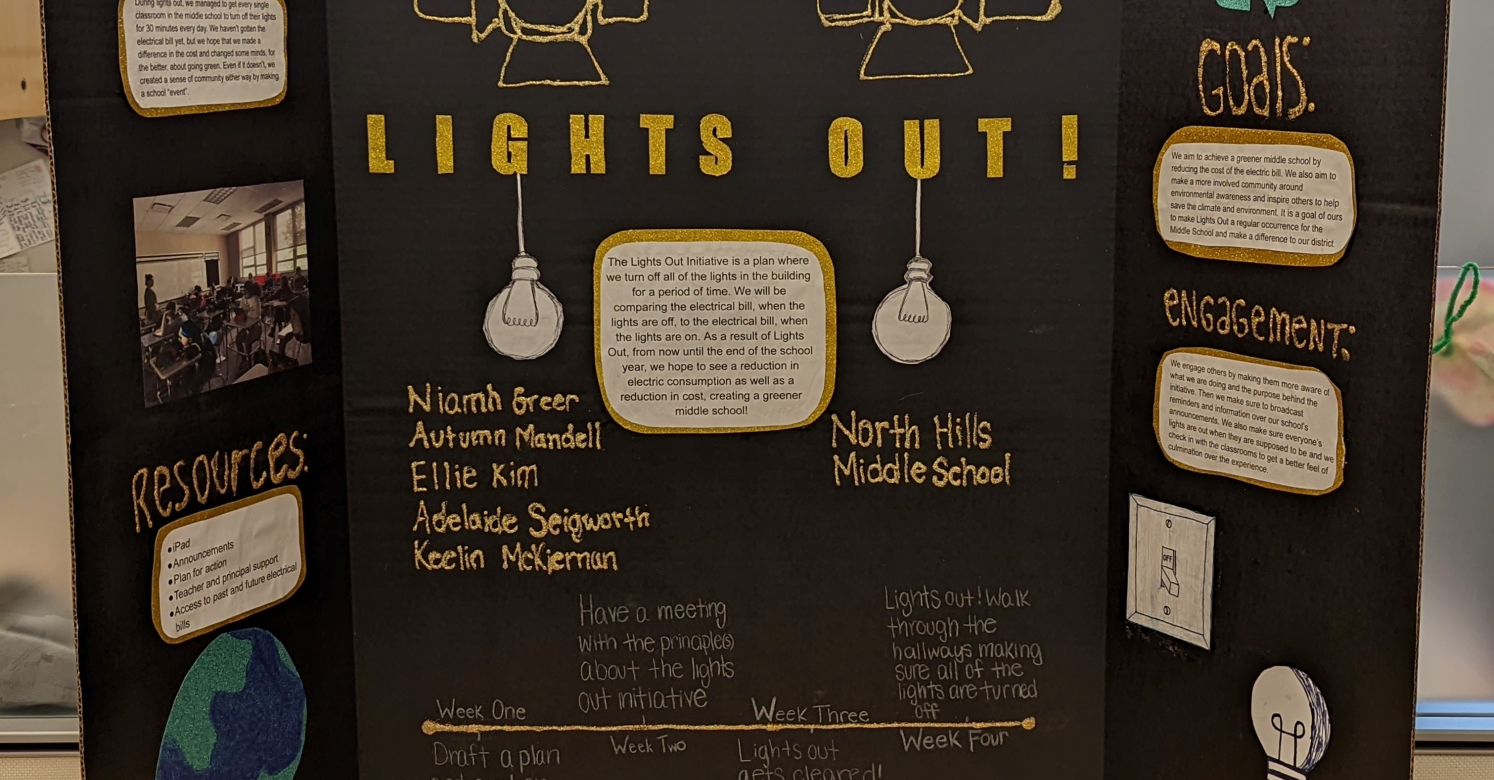 During lights out, we managed to get every single
classroom in the middle school to turn off their lights
for 30 minutes every day. We haven't gotten the
electrical bill yet, but we hope that we made a
difference in the cost and changed some minds, for
the better, about going green. Even if it doesn't, we
created a sense of community either way by making
a school "event".
Resources:
•iPad
•Announcements
•Plan for action
•Teacher and principal support
•Access to past and future electrical
bills
LIGHTS OUT!
The Lights Out Initiative is a plan where
we turn off all of the lights in the building
for a period of time. We will be
comparing the electrical bill, when the
lights are off, to the electrical bill, when
the lights are on. As a result of Lights
Out, from now until the end of the school
year, we hope to see a reduction in
electric consumption as well as a
reduction in cost, creating a greener
middle school!
Niamh Greer
Autumn Mandell
Ellie Kim
Adelaide Seigworth
Keelin McKiernan
North Hills
Middle School
Have a meeting
with the principle(s)
about the lights
out initiative
Lights out! Walk
through the
hallways making
sure all of the
lights are turned
off
Week One
Week Two
Week Three
Week Four
Draft a plan
Lights out
gets cleared!
Goals:
We aim to achieve a greener middle school by
reducing the cost of the electric bill. We also aim to
make a more involved community around
environmental awareness and inspire others to help
save the climate and environment. It is a goal of ours
to make Lights Out a regular occurrence for the
Middle School and make a difference to our district
Engagement:
We engage others by making them more aware of
what we are doing and the purpose behind the
initiative. Then we make sure to broadcast
reminders and information over our school's
announcements. We also make sure everyone's
lights are out when they are supposed to be and we
check in with the classrooms to get a better feel of
culmination over the experience.
OFF